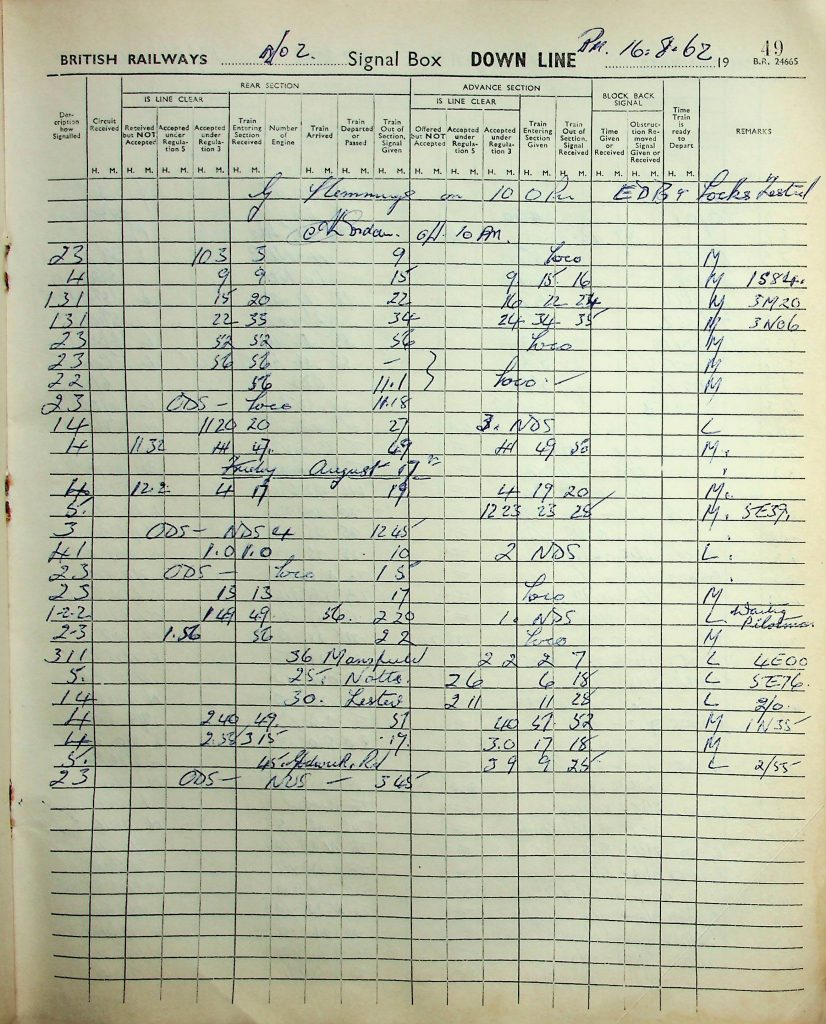 BRITISH RAILWAYS No 2. Signal Box DOWN LINE P.M. 16.8.62 19 49
B.R. 24665
REAR SECTION ADVANCE SECTION BLOCK BACK SIGNAL
IS LINE CLEAR IS LINE CLEAR
Description how Signalled Circuit Received Received but NOT Accepted Accepted under Regulation 5 Accepted under Regulation 3 Train Entering Section Received Number of Engine Train Arrived Train Departed or Passed Train Out of Section, Signal Given Offered but NOT Accepted Accepted under Regulation 5 Accepted under Regulation 3 Train Entering Section Given Train Out of Section, Signal Received Time Given or Received Obstruction Removed Signal Given or Received Time Train is ready to Depart REMARKS
H. M. H. M. H. M. H. M. H. M. H. M. H. M. H. M. H. M. H. M. H. M. H. M. H. M. H. M. H. M. H. M.
G Flemming on 10 0 Pm EDB 9 Locks
Jordan. off. 10 PM.
23 10 3 3 9 Loco M
4 9 9 15 9 15 16 M 1S84
131 15 20 22 16 22 24 M 3M20
131 22 33 34 24 34 35 M 3N06
23 52 52 56 Loco M
23 56 56 — M
22 56 11.1 Loco. M
23 ODS - Loco 11.18
14 11 20 20 27 3. NDS L
4 11 32 47. 49 49 50 M.
Friday August 17th
4 12.2 4 17 19 4 19 20 M.
5. 12 23 23 28 M. 5E39.
3 ODS - NDS 4 12 45
41 1.0 1.0 10 2 NDS L.
23 ODS - Loco 1 5
23 13 13 17 Loco M
1-2-2 1 49 49. 56. 2 20 1. NDS L. Waiting Pilotman
2-3 1.56 56 2 2 Loco M
311 36 Mansfield 2 2 2 7 L 4E00
5. 25. Notts. 2 6 6 18 L 5E76
14 30. Lester 2 11 11 28 L 2/0.
4 2 40 49. 51 40 51 52 M 1N35
4 2.53 3 15 17. 3.0 17 18 M
5. 45. Rd 3 9 9 25 L 2/55
23 ODS - NDS - 3 45